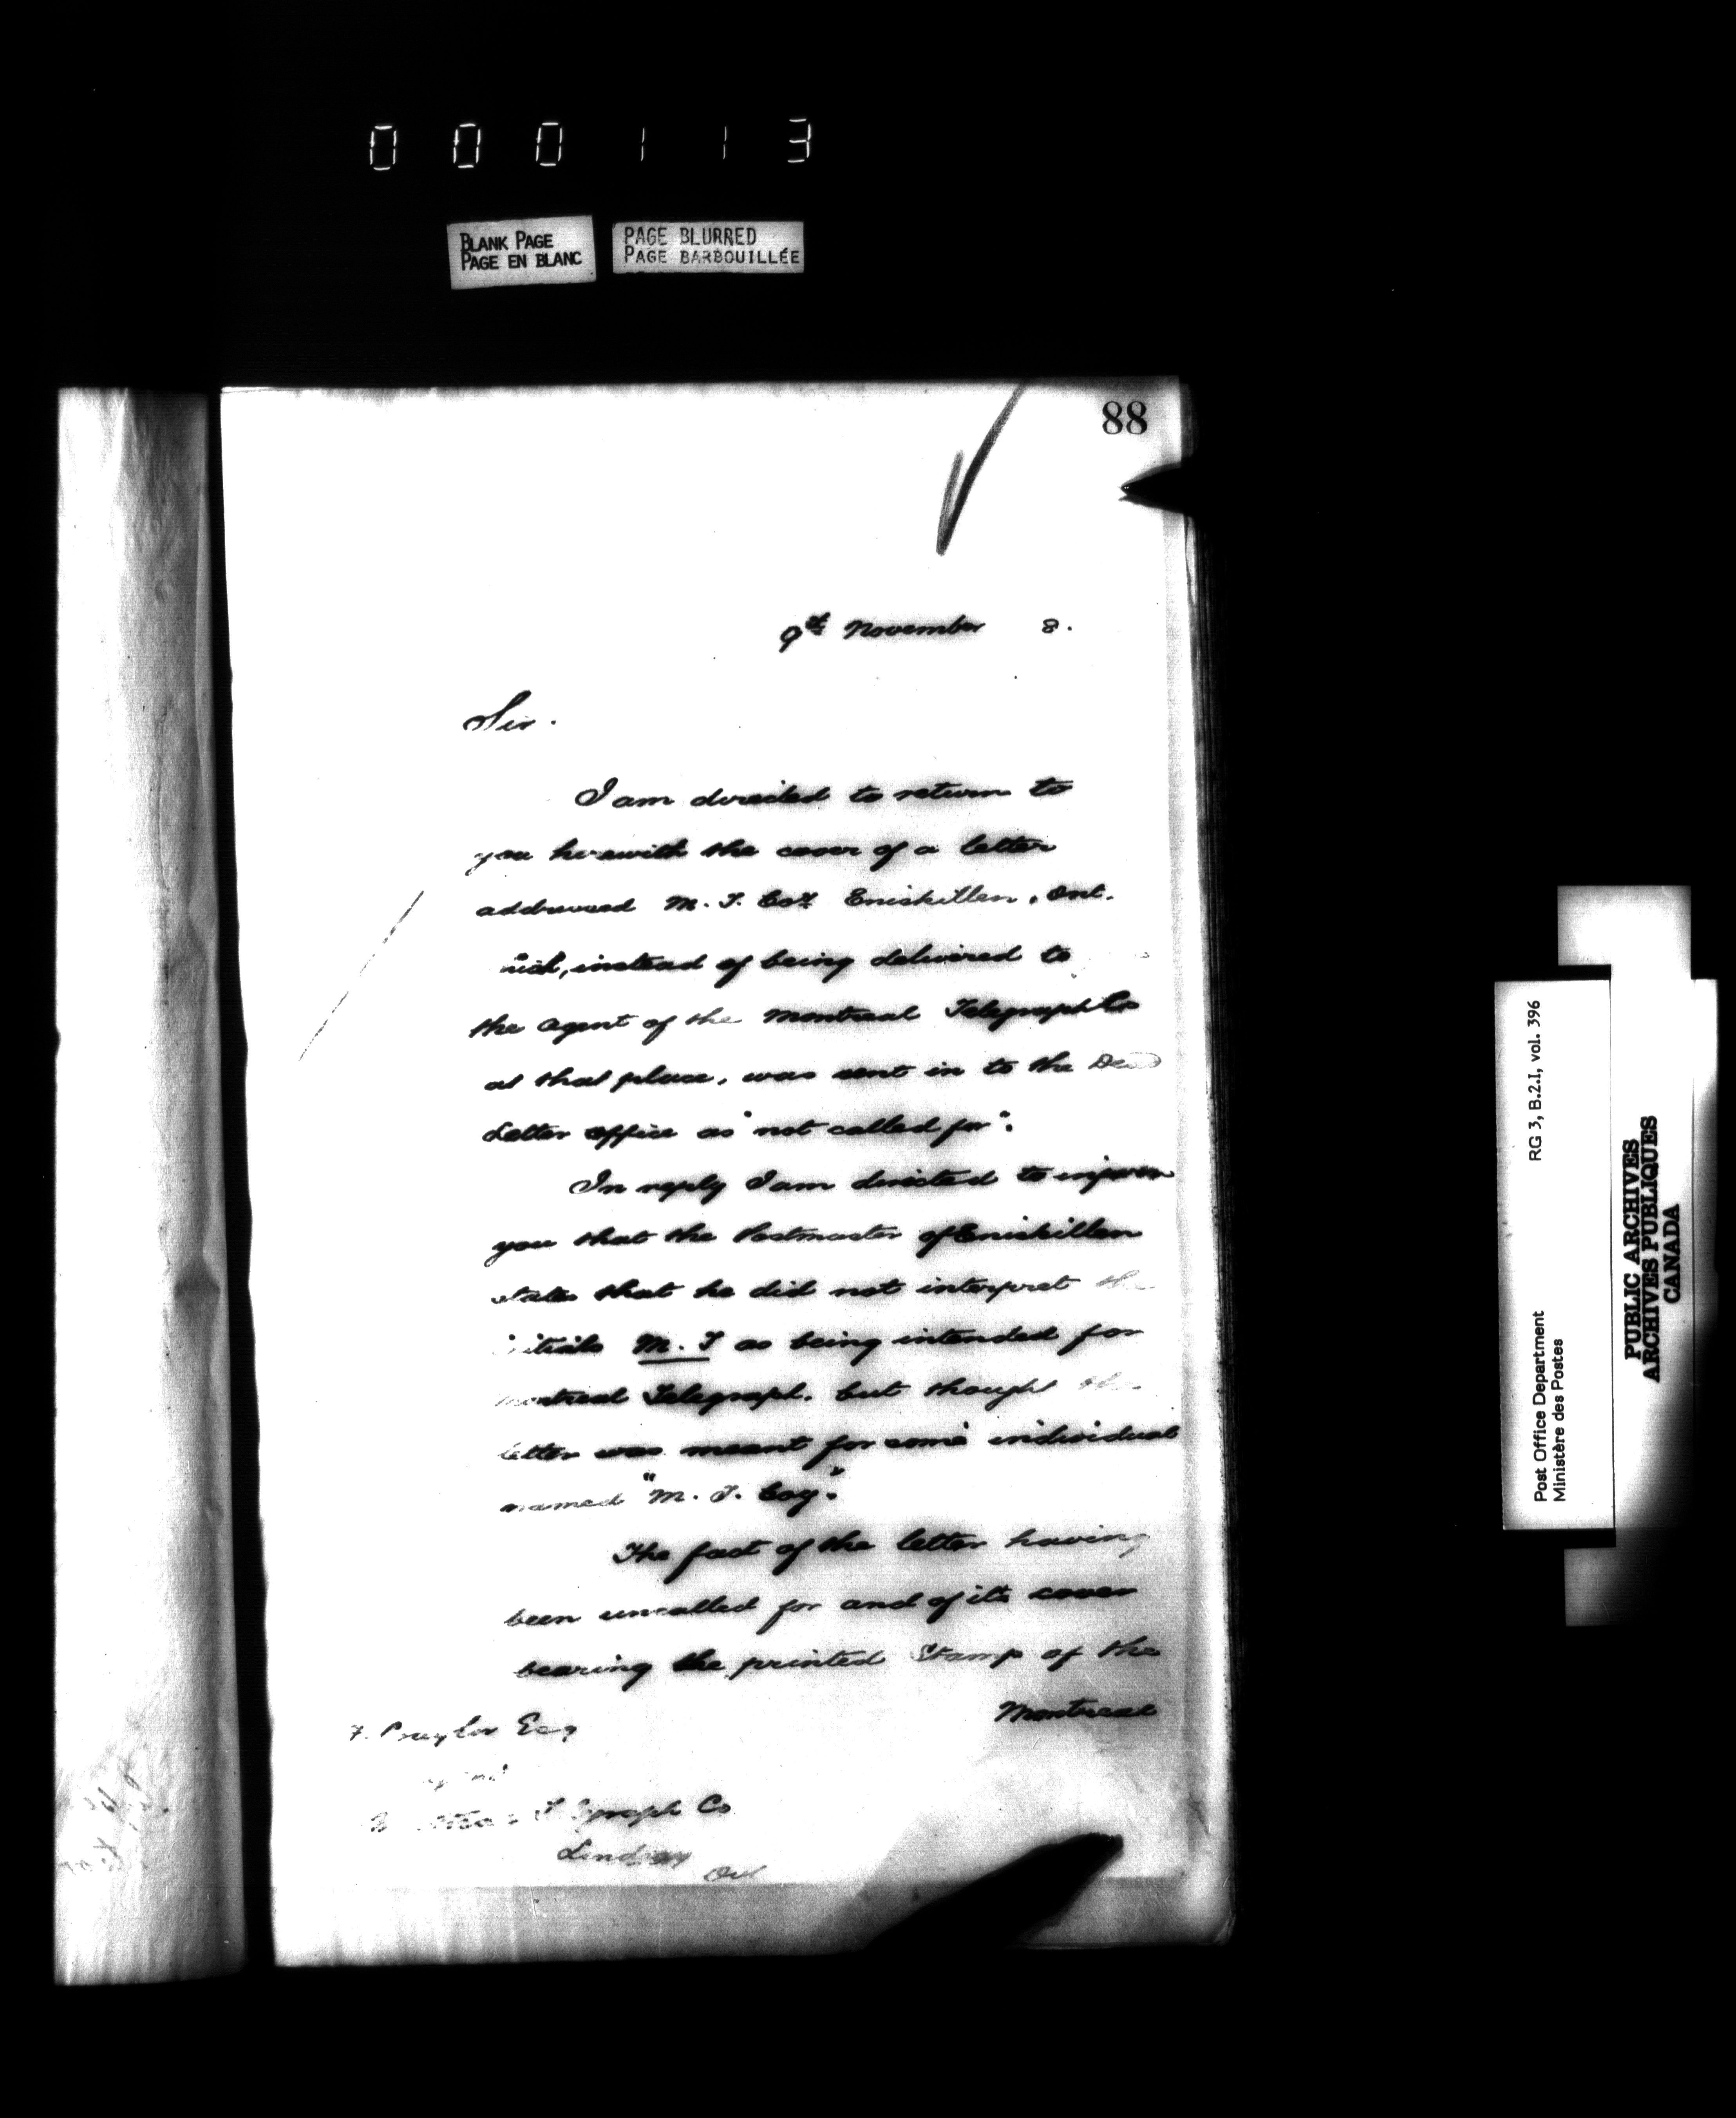 000113
BLANK PAGE
PAGE EN BLANC
PAGE BLURRED
PAGE BARBOUILLÉE
88
9th November 8.
Sir.
I am directed to return to
you herewith the cover of a letter
addressed M. T. Coy Eniskillen, Ont.
instead of being delivered to
the agent of the Montreal Telegraph Co
at that place, was sent in to the Dead
Letter office as "not called for".
In reply I am directed to inform
you that the Postmaster of Eniskillen
states that he did not interpret the
initials M. T as being intended for
Montreal Telegraph. but thought the
letter was meant for some individual
named "M. T. Coy".
The fact of the letter having
been uncalled for and of its cover
bearing the printed Stamp of the
Montreal
F. Esq
Telegraph Co
Lindsay
Ont
RG 3, B.2.I, vol. 396
Post Office Department
Ministère des Postes
PUBLIC ARCHIVES
ARCHIVES PUBLIQUES
CANADA